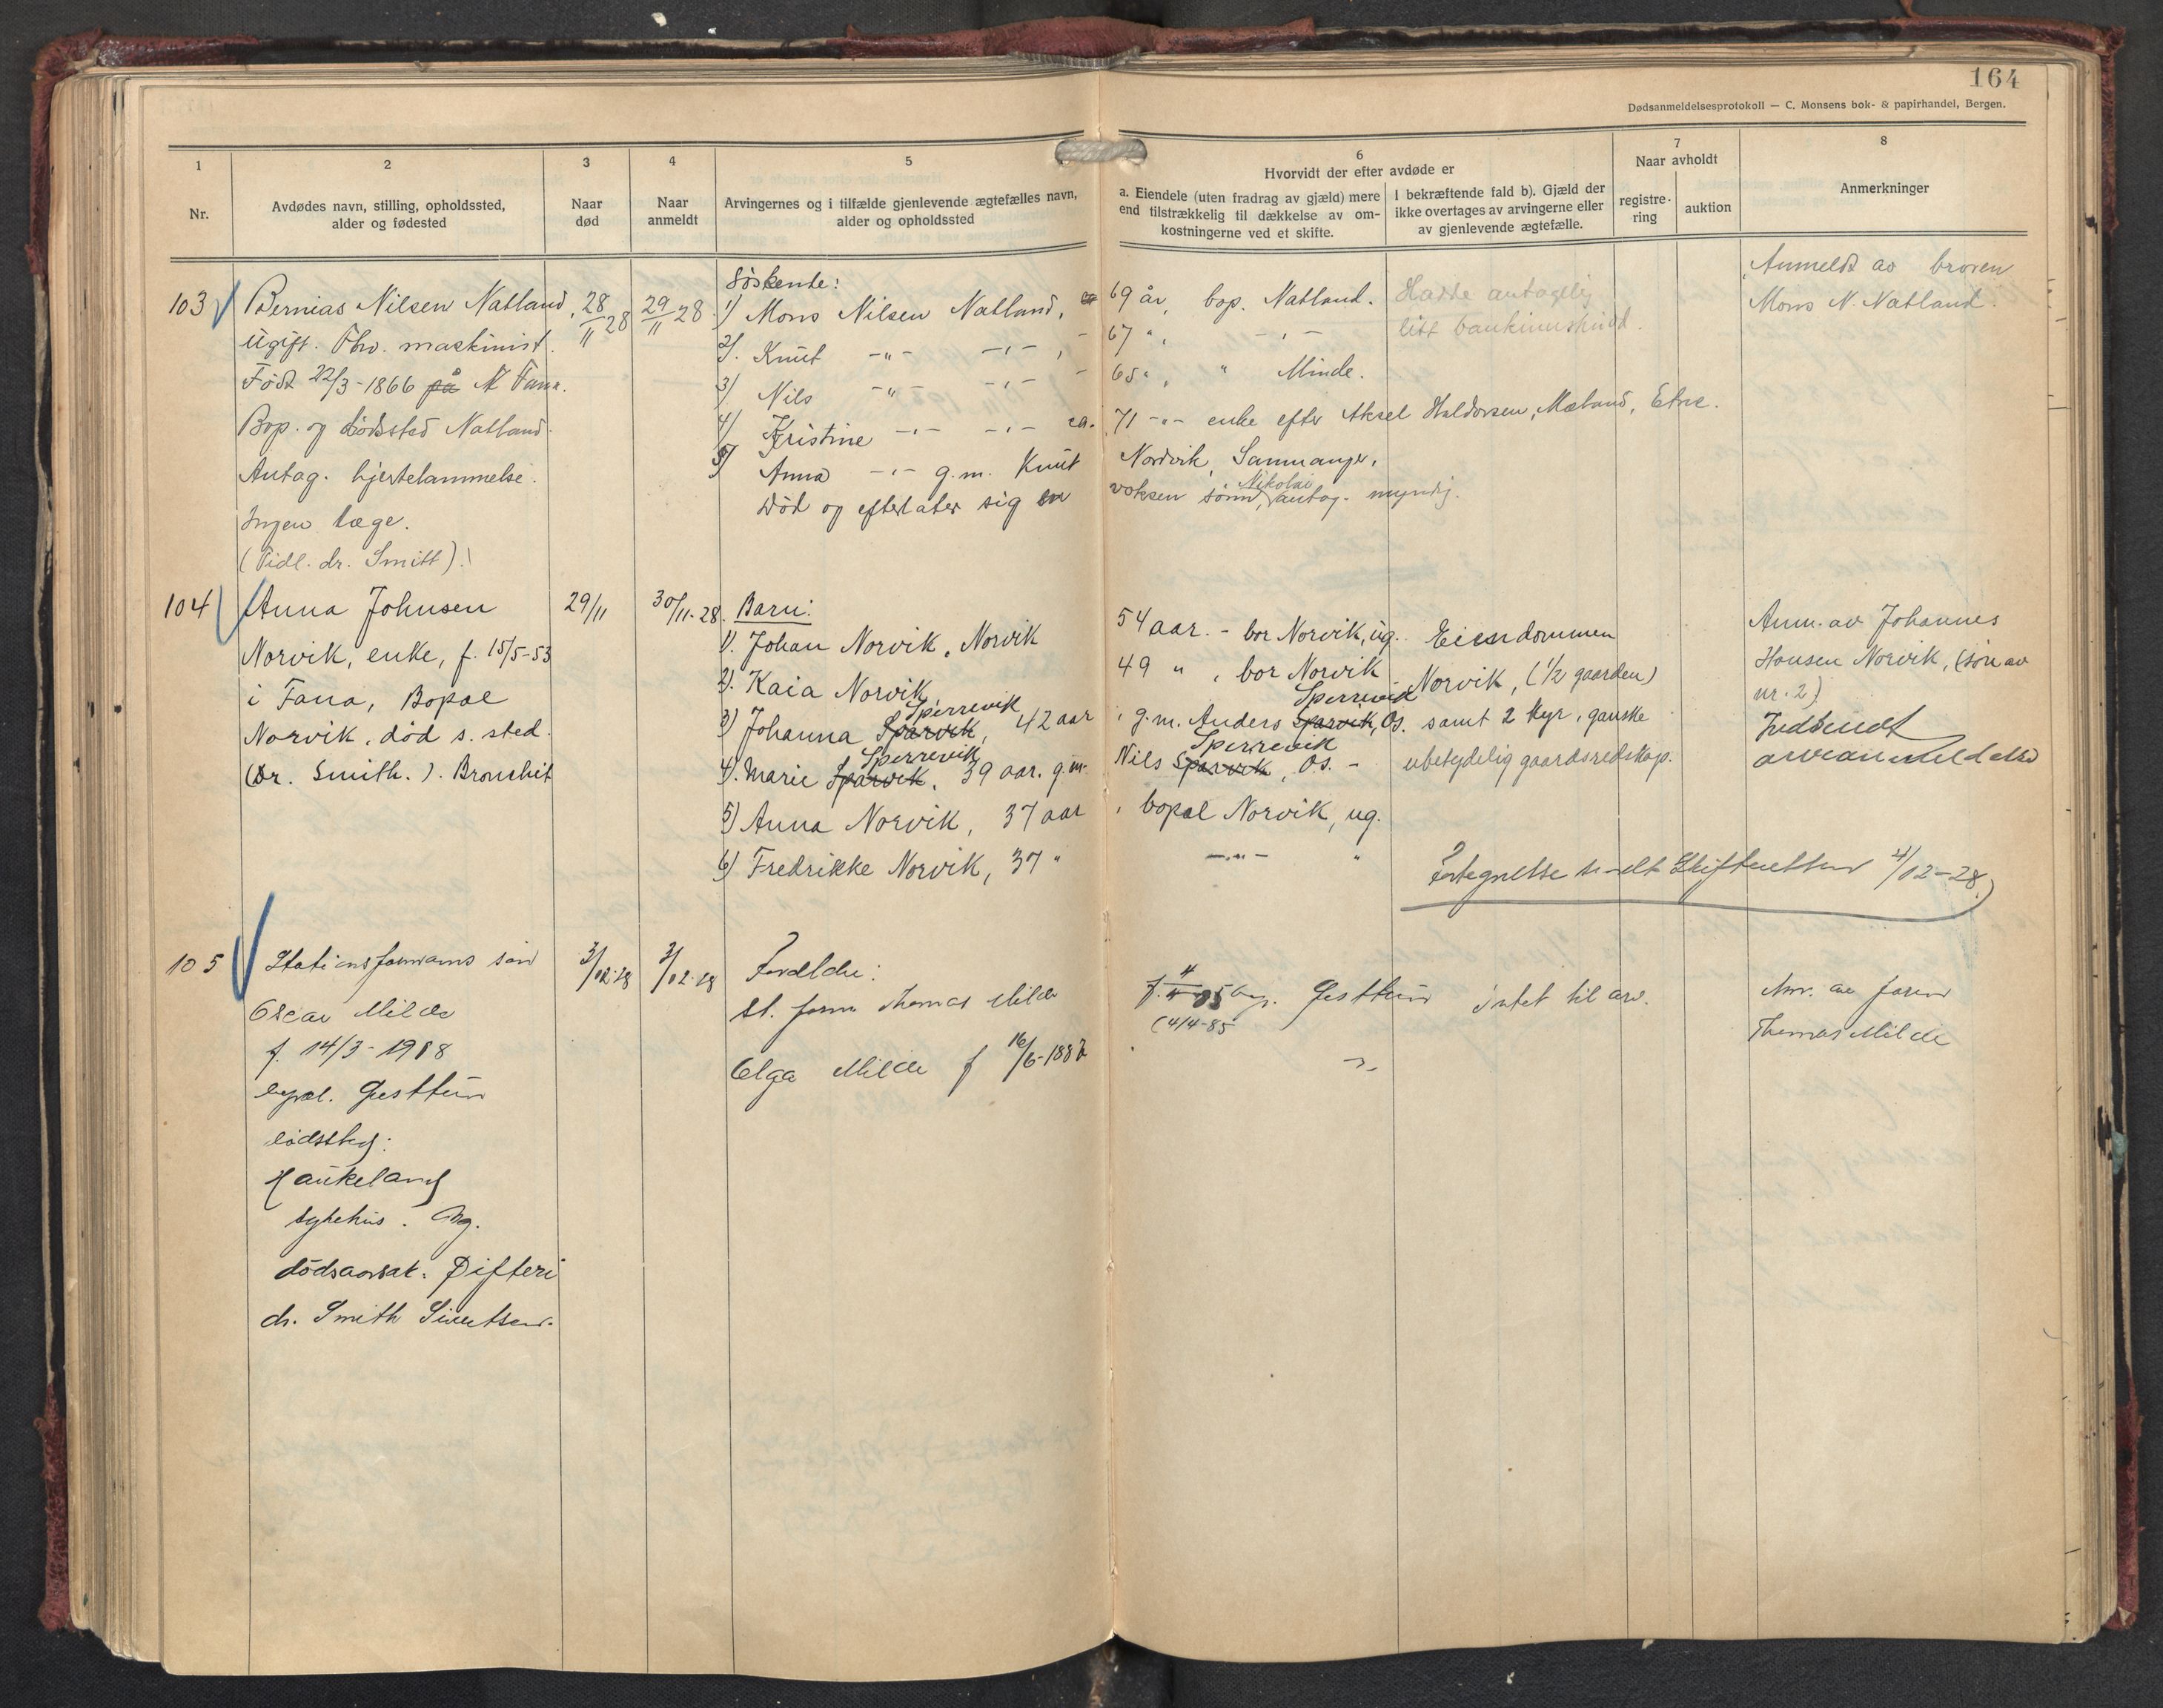 164
Dødsanmeldelsesprotokoll — C. Monsens bok- & papirhandel, Bergen.
1
Nr.
2
Avdødes navn, stilling, opholdssted,
alder og fødested
3
Naar
død
4
Naar
anmeldt
5
Arvingernes og i tilfælde gjenlevende ægtefælles navn,
alder og opholdssted
6
Hvorvidt der efter avdøde er
a. Eiendele (uten fradrag av gjæld) mere
end tilstrækkelig til dækkelse av om-
kostningerne ved et skifte.
I bekræftende fald b). Gjæld der
ikke overtages av arvingerne eller
av gjenlevende ægtefælle.
7
Naar avholdt
registre-
ring
auktion
8
Anmerkninger
103
Bernias Nilsen Natland,
Ugift. Fhv. maskinist.
Født 22/3-1866 på N Fana.
Bop. og dødssted Natland.
Antag. hjertelammelse.
Ingen læge.
(Tidl. dr. Smitt).
28/11 28
29/11 28
Søskende:
1) Mons Nilsen Natland, 69 år, bop. Natland.
2). Knut -"- -"-, 67 ", -"-
3) Nils -"- -"- 65 ", " Minde.
4) Kristine -"- -"- ca. 71 -"- enke efter Aksel Haldorsen, Mæland, Etne.
5) Anna -"- g.m. Knut Nordvik, Samnanger,
død og efterlater sig en voksen sønn, Nikolai antag. myndig.
Hadde antagelig
litt bankinnskudd.
Anmeldt av broren
Mons N. Natland.
104
Anna Johnsen
Norvik, enke, f. 15/5-53
i Fana, Bopæl
Norvik, død s. sted.
(Dr. Smith.). Bronchit
29/11
30/11-28.
Barn:
1). Johan Norvik, Norvik 54 aar. - bor Norvik, ug.
2). Kaia Norvik, 49 " , bor Norvik
3) Johanna Sparvik Sperrevik, 42 aar, g.m. Anders Sparvik Sperrevik, Os.
4). Marie Sparvik Sperrevik, 39 aar. g.m. Nils Sparvik Sperrevik, Os. -
5) Anna Norvik, 37 aar, bopæl Norvik, ug.
6) Fredrikke Norvik, 37 " -"- "
Eiendommen
Norvik, (1/2 gaarden)
samt 2 kyr, ganske
ubetydelig gaardsredskap.
Fortegnelse sendt Skifteretten 4/12-28.
Anm. av Johannes
Hansen Norvik, (søn av
nr. 2)
Indsendt
arveanmeldelse
105
Stationsformanns søn
Oscar Milde
f. 14/3-1918
bopæl. Nesttun
dødssted:
Haukeland
sykehus. Bg.
dødsaarsak: Difteri
dr. Smith Sivertsen.
3/12-28
3/12-28
Foreldre:
St. form Thomas Milde
f. 4/4-85 bop. Nesttun
(4/4-85
intet til arv.
Olga Milde f 16/6-1887
-"-
Anm. av faren
Thomas Milde